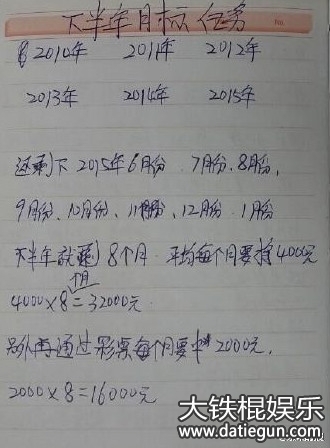 下半年目标任务
2010年 2011年 2012年
2013年 2014年 2015年
还剩下2015年6月份、7月份、8月份,
9月份、10月份、11月份、12月份、1月份
下半年就剩8个月 平均每个月要 4000元
4000×8=32000元
另外再通过彩票每个月要中2000元,
2000×8=16000元
大铁棍娱乐
www.datiegun.com